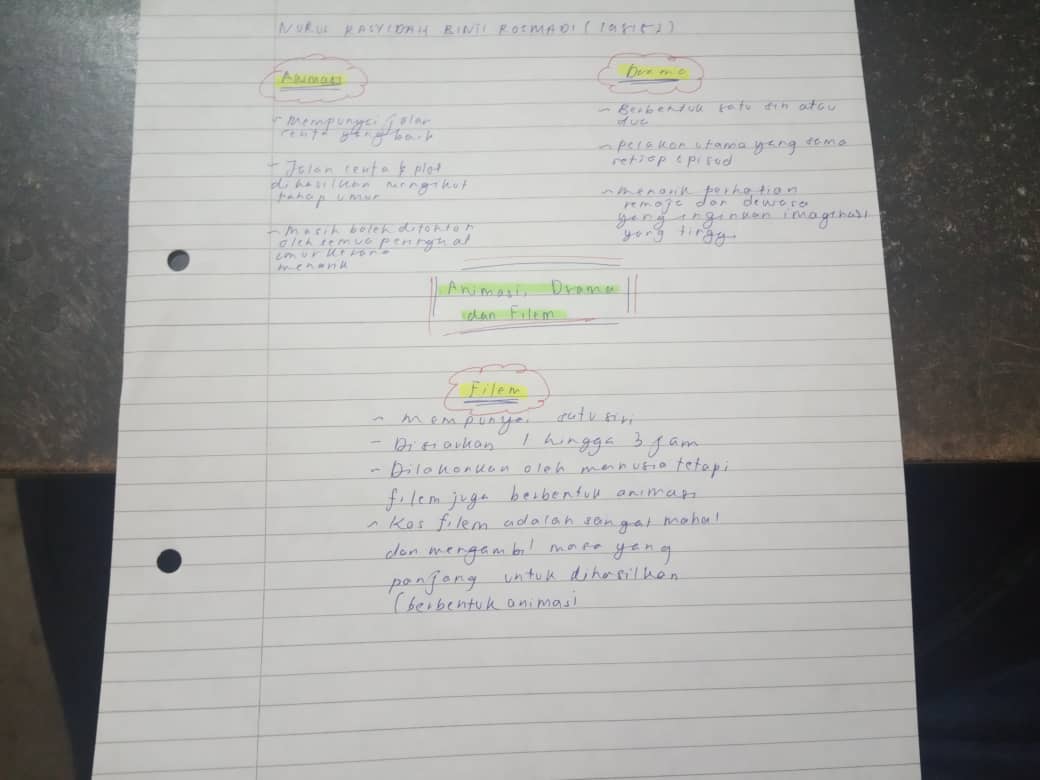 NURUL RASYIDAH BINTI ROSMADI
Animasi
- Mempunyai jalan
cerita yang baik
- Jalan cerita & plot
dihasilkan mengikut
tahap umur
- Masih boleh ditonton
oleh semua peringkat
umur kerana
menarik
Drama
- Berbentuk satu siri atau
dua
- pelakon utama yang sama
setiap episod
- menarik perhatian
remaja dan dewasa
yang inginkan imaginasi
yang tinggi
Animasi, Drama
dan Filem
Filem
- mempunyai satu siri
- Disiarkan 1 hingga 3 jam
- Dilakonkan oleh manusia tetapi
filem juga berbentuk animasi
- Kos filem adalah sangat mahal
dan mengambil masa yang
panjang untuk dihasilkan
(berbentuk animasi